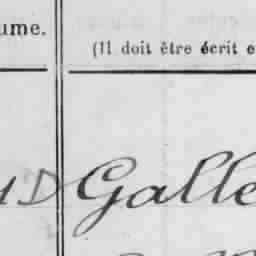 ume.
(Il doit être écrit e
D Galle